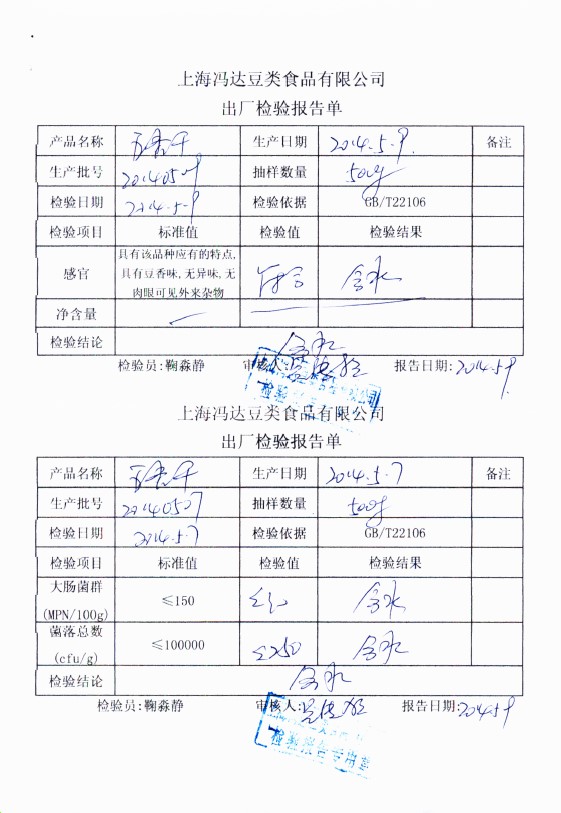 上海冯达豆类食品有限公司
出厂检验报告单
产品名称 五香干 生产日期 2014-5-9. 备注
生产批号 20140509 抽样数量 500g
检验日期 2014-5-9 检验依据 GB/T22106
检验项目 标准值 检验值 检验结果
具有该品种应有的特点,
感官 具有豆香味,无异味,无 符合 合格
肉眼可见外来杂物
净含量
检验结论 合格
检验员:鞠淼静 审核人: 报告日期:2014.5-9
上海冯达豆类食品有限公司
出厂检验报告单
产品名称 五香干 生产日期 2014.5-7 备注
生产批号 20140507 抽样数量 500g
检验日期 2014-5-7 检验依据 GB/T22106
检验项目 标准值 检验值 检验结果
大肠菌群
(MPN/100g) ≤150 合格
菌落总数
(cfu/g) ≤100000 ≤250 合格
检验结论 合格
检验员:鞠淼静 审核人: 报告日期:2014.5.9
检验报告专用章